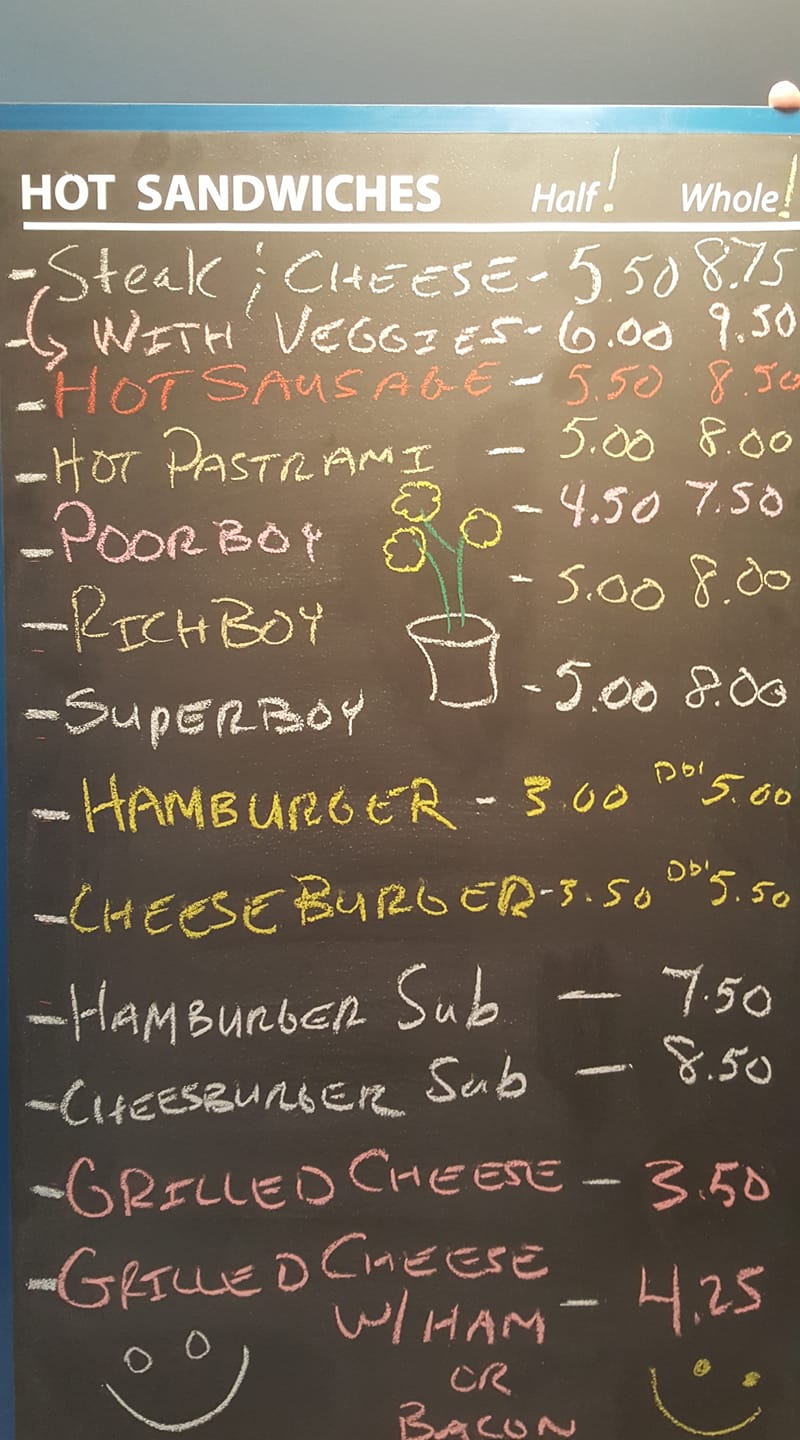 HOT SANDWICHES Half! Whole!
- Steak & CHEESE - 5.50 8.75
- WITH VEGGIES - 6.00 9.50
- HOT SAUSAGE - 5.50 8.50
- HOT PASTRAMI - 5.00 8.00
- POORBOY - 4.50 7.50
- RICHBOY - 5.00 8.00
- SUPERBOY - 5.00 8.00
- HAMBURGER - 3.00 Dbl 5.00
- CHEESEBURGER - 3.50 Dbl 5.50
- HAMBURGER Sub - 7.50
- CHEESBURGER Sub - 8.50
- GRILLED CHEESE - 3.50
- GRILLED CHEESE
W/ HAM - 4.25
OR
BACON